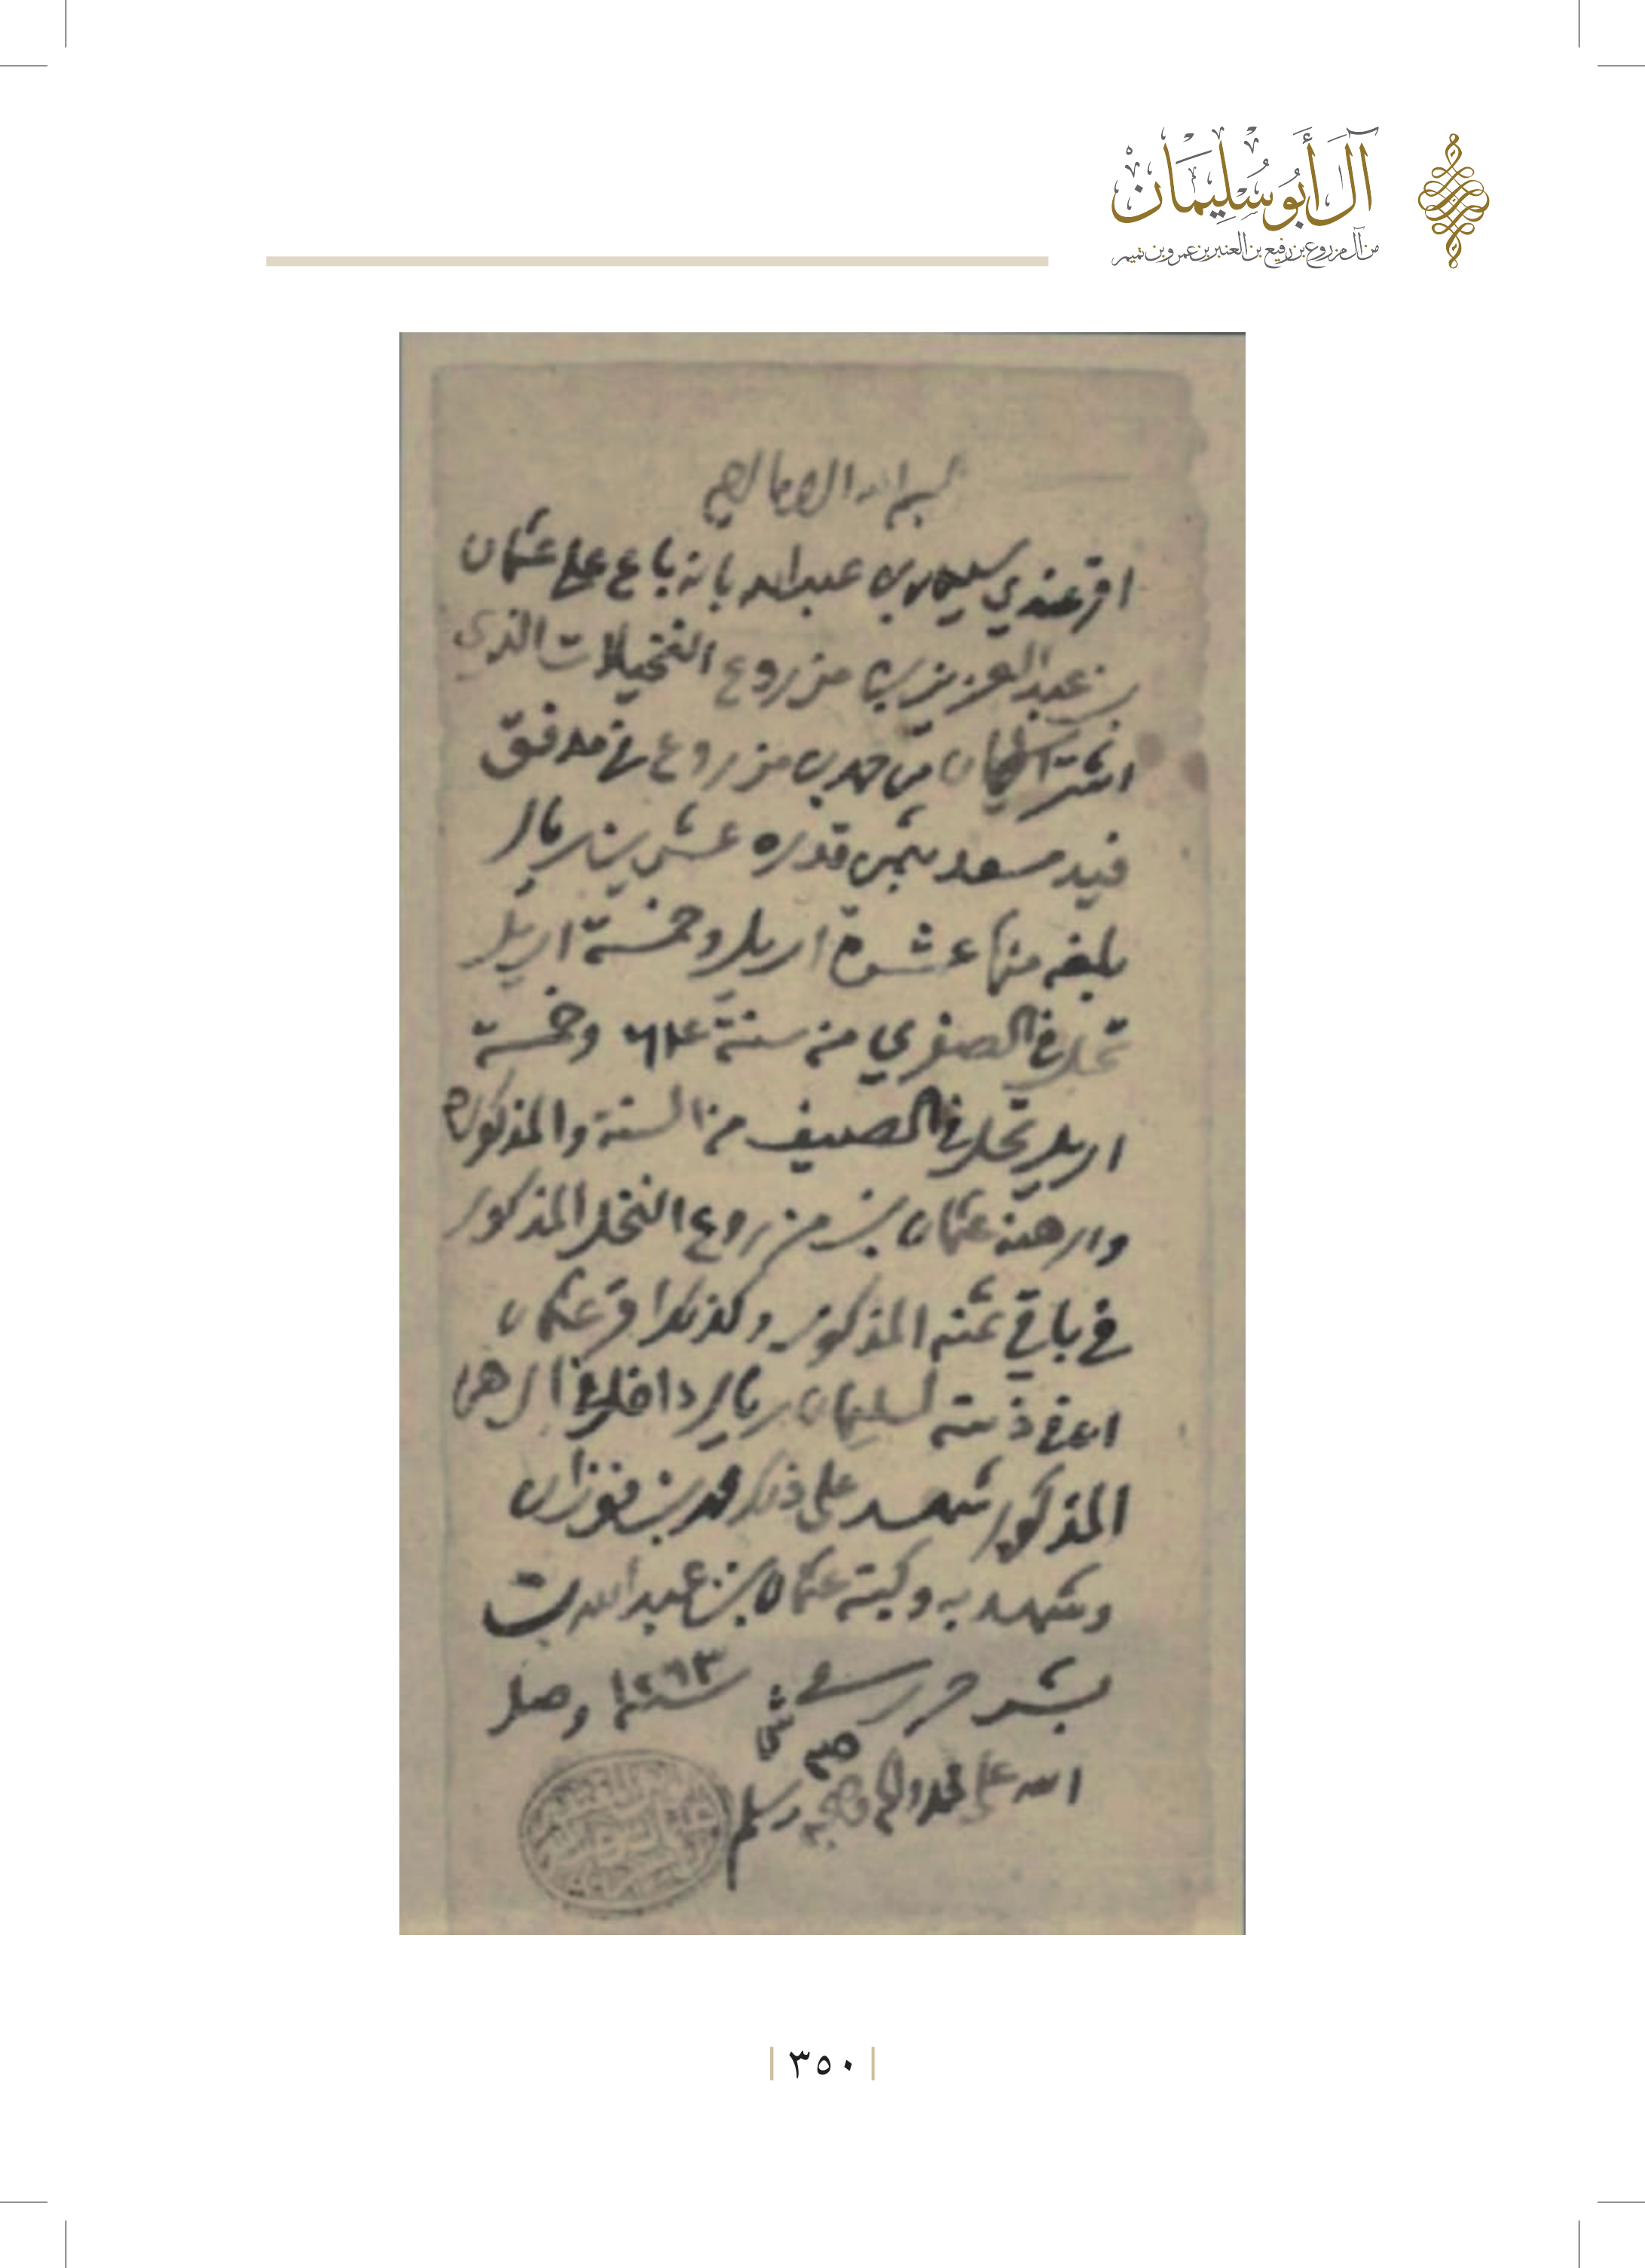 آل أبو سليمان
من آل مزروع بن رفيع بن العنبر بن عمرو بن تميم
بسم الله الرحمن الرحيم
اقر عندي سليمان بن عبدالله بانه باع على عثمان
بن عبد العزيز بن مزروع النخيلات الذي
اشترا سليمان من حمد بن مزروع في
فيد مسعد بثمن قدره عشرين ريال
بلغه منها عشرة اريل وخمسة اريل
تحل في الصفري من سنة ٦٤ وخمسة
اريل تحل في الصيف من السنة والمذكوره
وارهنه عثمان بن مزروع النخل المذكور
في باقي ثمنه المذكور وكذلك اقر عثمان
ان في ذمته لسليمان ريال داخل في الرهن
المذكور شهد على ذلك محمد بن فوزان
وشهد به وكتبه عثمان بن عبد الله بن
بشر حرر سنة ١٢٦٣ وصلى
الله على محمد واله وصحبه وسلم
٣٥٠